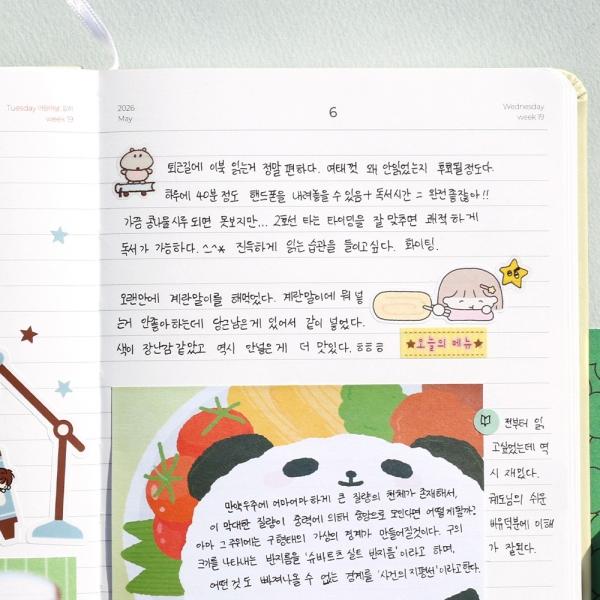 Tuesday
week 19
2026
May
6
Wednesday
week 19
퇴근길에 이북 읽는거 정말 편하다. 여태껏 왜 안읽었는지 후회될정도다.
하루에 40분 정도 핸드폰을 내려놓을 수 있음 + 독서시간 = 완전 좋잖아!!
가끔 콩나물시루 되면 못보지만... 2호선 타는 타이밍을 잘 맞추면 쾌적하게
독서가 가능하다. ^_^* 진득하게 읽는 습관을 들이고싶다. 화이팅.
오랜만에 계란말이를 해먹었다. 계란말이에 뭐 넣
는거 안좋아하는데 당근남은게 있어서 같이 넣었다.
색이 장난감 같았고 역시 안넣은게 더 맛있다. ㅎㅎㅎ
오늘의 메뉴
만약 우주에 어마어마하게 큰 질량의 천체가 존재해서,
이 막대한 질량이 중력에 의해 중앙으로 모인다면 어떻게될까?
아마 그 주위에는 구형태의 가상의 경계가 만들어질것이다. 구의
크기를 나타내는 반지름을 '슈바르츠 실트 반지름'이라고 하며,
어떤 것도 빠져나올 수 없는 경계를 '사건의 지평선'이라고한다.
전부터 읽
고싶었는데 역
시 재밌다.
궤도님의 쉬운
비유덕분에 이해
가 잘된다.